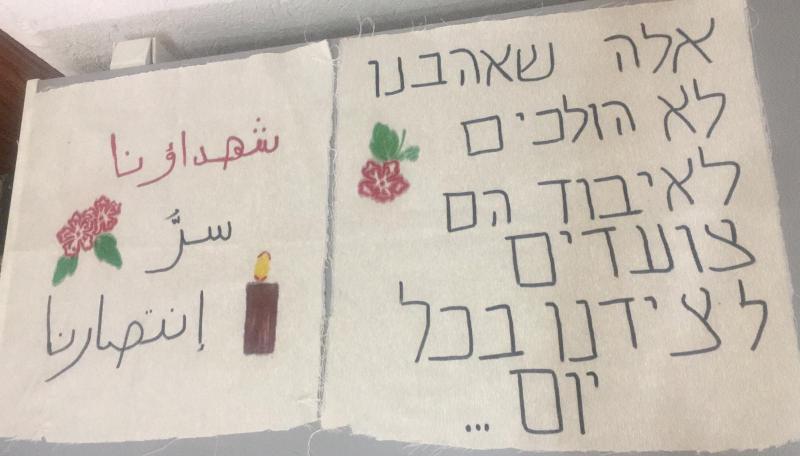 אלה שאהבנו
לא הולכים
לאיבוד הם
צועדים
לצידנו בכל
יום ...
شهداؤنا
سرُّ
إنتصارنا